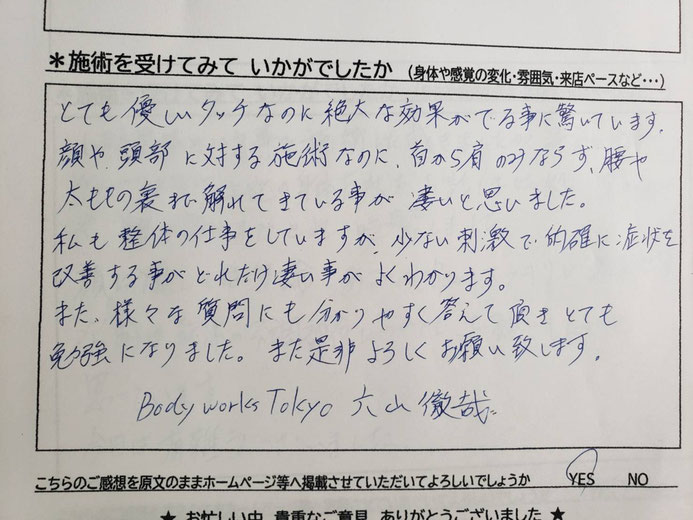 *施術を受けてみて いかがでしたか (身体や感覚の変化・雰囲気・来店ペースなど・・・)
とても優しいタッチなのに絶大な効果がでる事に驚いています。
顔や頭部に対する施術なのに、首から肩のみならず、腰や
太ももの裏まで解れてきている事が凄いと思いました。
私も整体の仕事をしていますが、少ない刺激で的確に症状を
改善する事がどれだけ凄い事がよくわかります。
また、様々な質問にも分かりやすく答えて頂きとても
勉強になりました。また是非よろしくお願い致します。
Body works Tokyo 六山徹哉
こちらのご感想を原文のままホームページ等へ掲載させていただいてよろしいでしょうか YES NO
★ お忙しい中 貴重なご意見 ありがとうございました ★